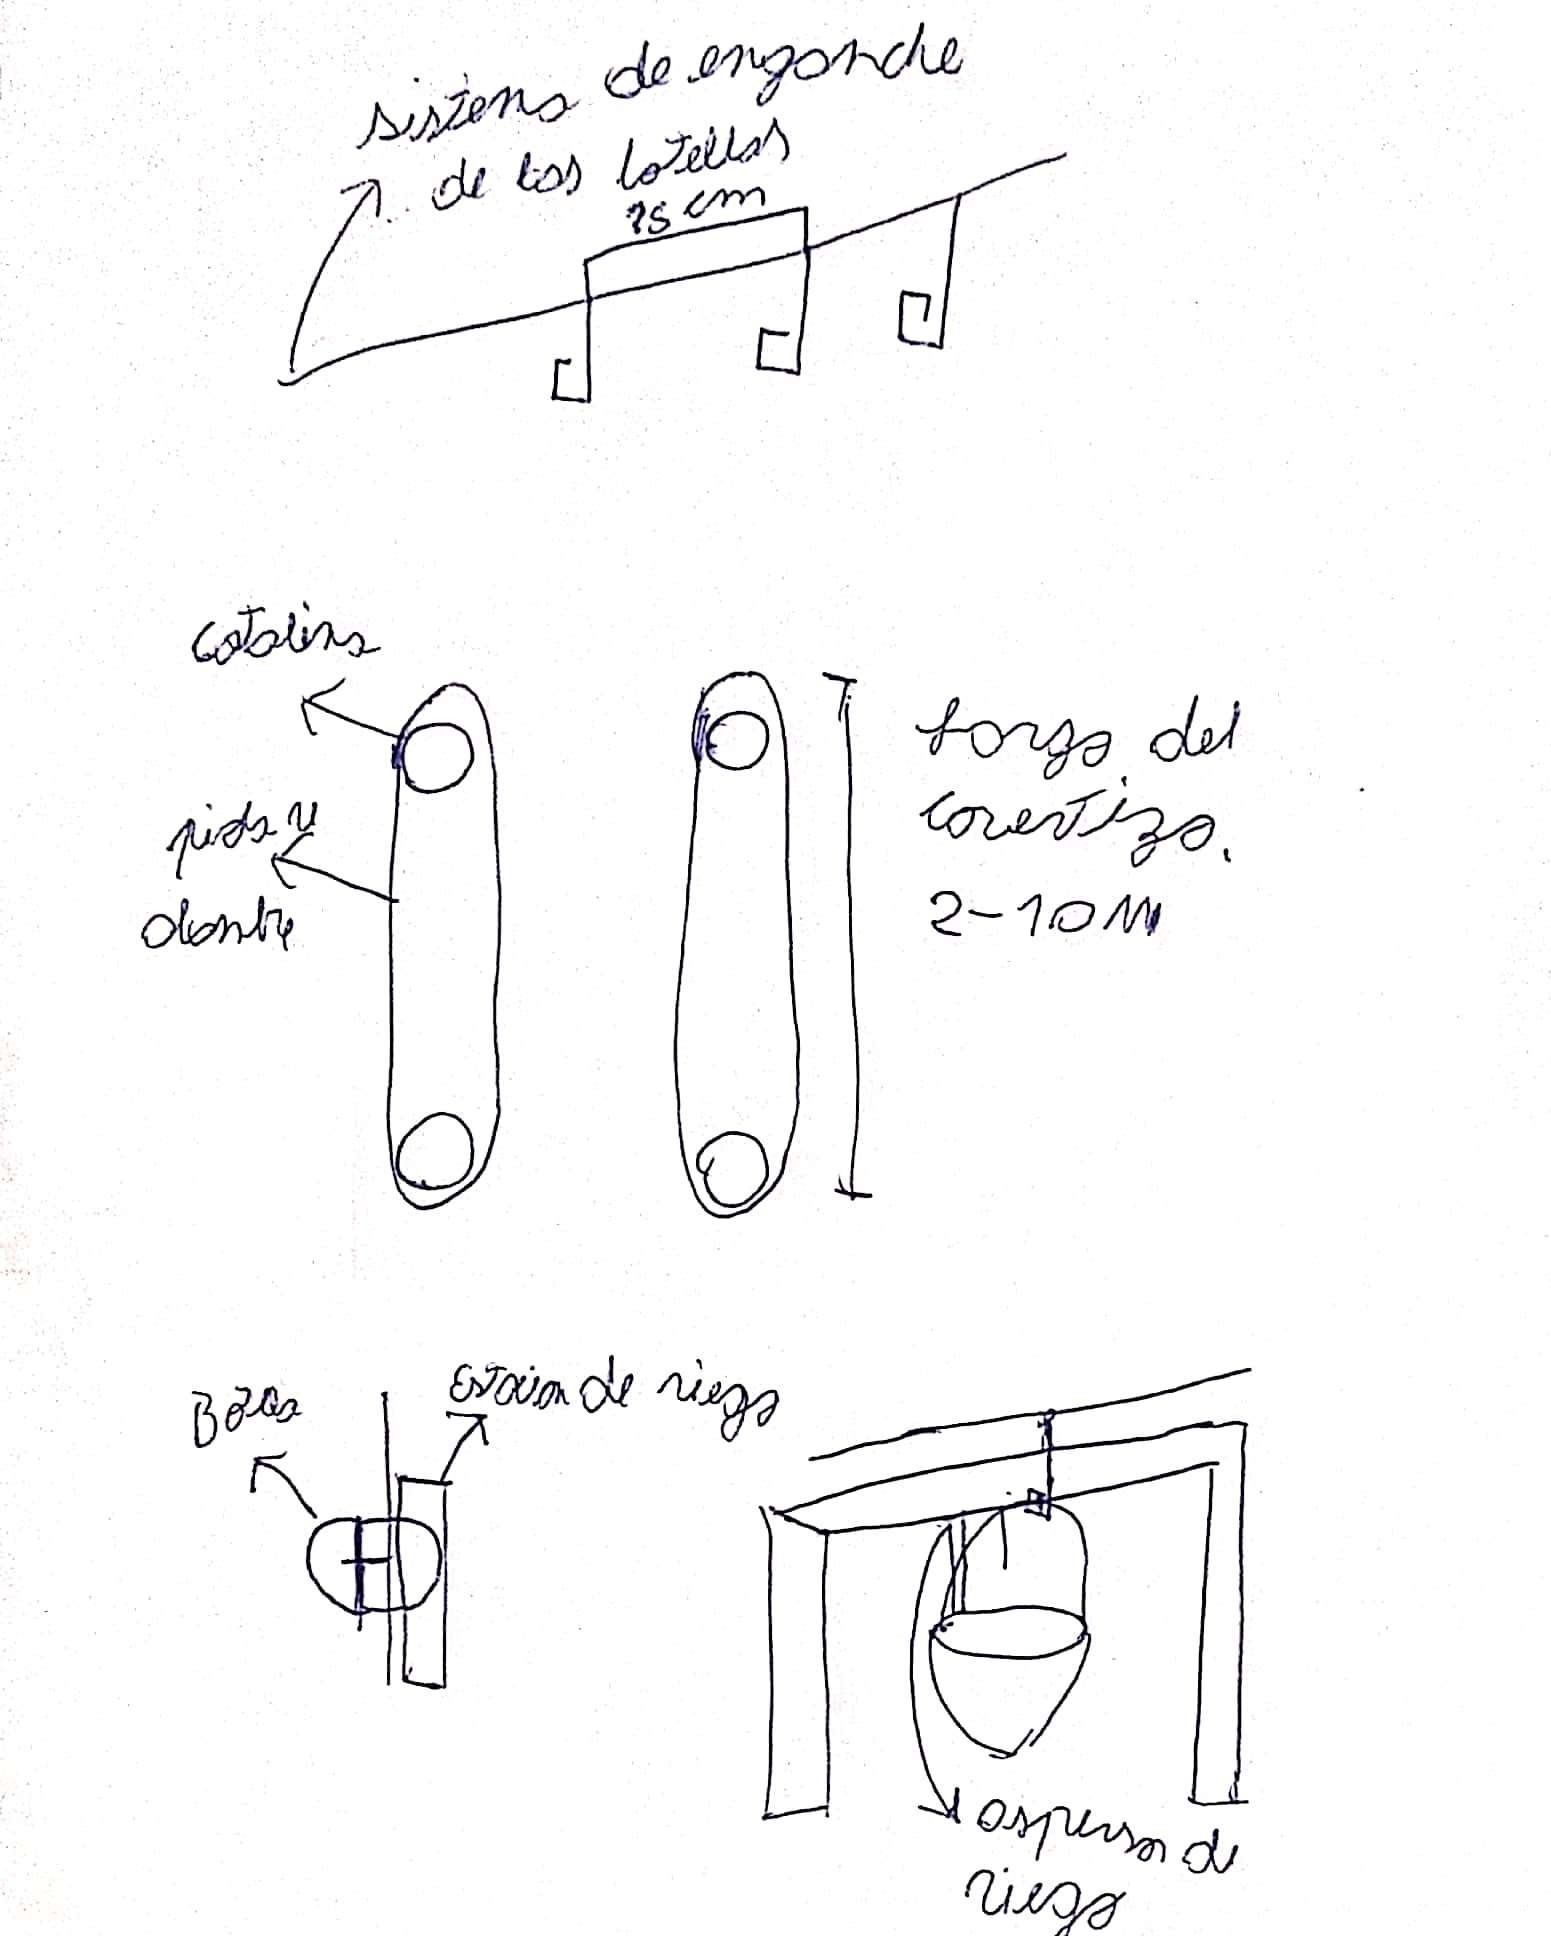 sistema de enganche
de las botellas
75 cm
catalina
largo del
covertizo.
2-10 M
Estacion de riego
aspersor de
riego